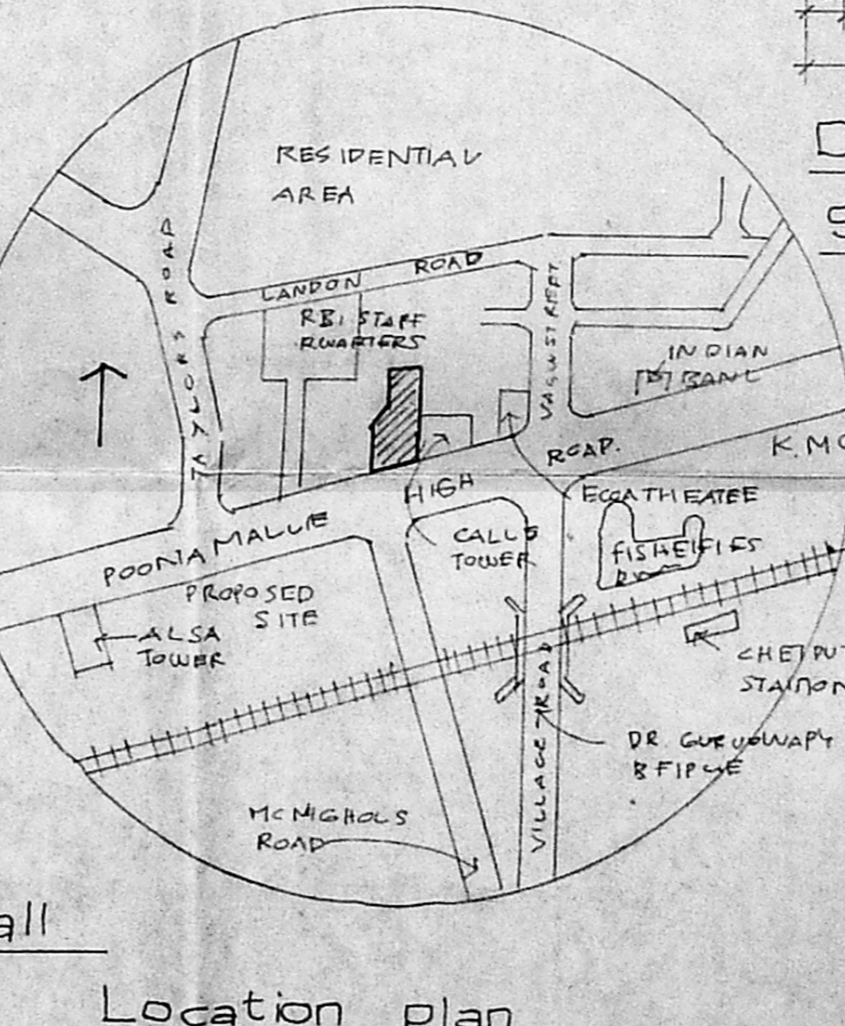 RESIDENTIAL
AREA
TAYLORS ROAD
LANDON ROAD
RBI STAFF
RUARTERS
VAGUSTREET
INDIAN
BANK
POONAMALLIE HIGH ROAD.
K.MC
EGGATHEATEE
CALLS
TOWER
FISHEIFIES
PROPOSED
SITE
ALSA
TOWER
CHETPUT
STATION
DR. GURUSWAPY
BFIPGE
VILLAGE ROAD
MCNIGHOLS
ROAD
all
Location plan